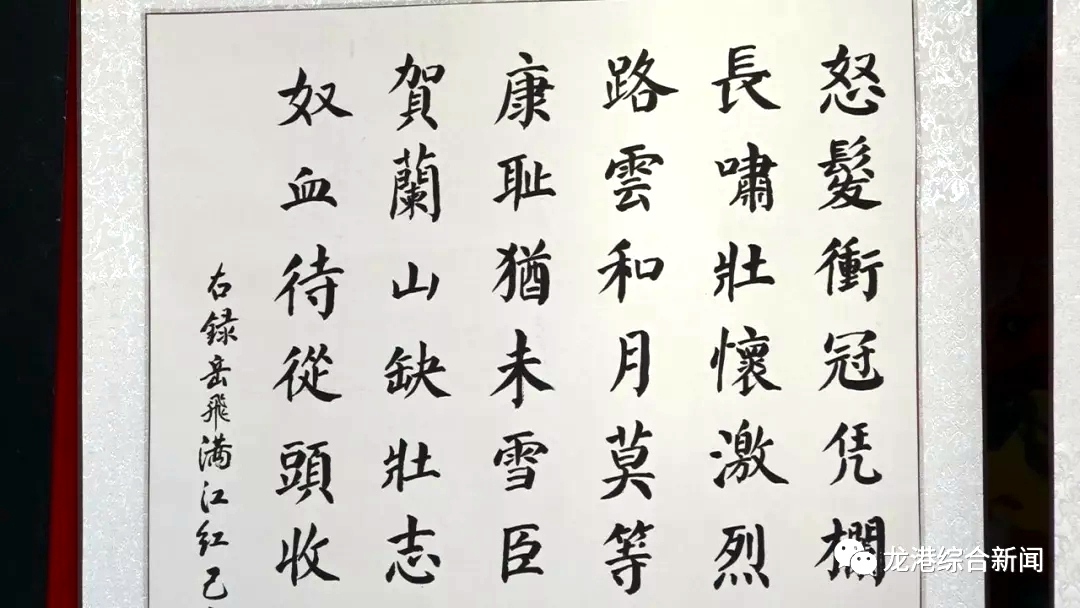 怒髮衝冠凭欄
長嘯壯懷激烈
路雲和月莫等
康耻猶未雪臣
賀蘭山缺壯志
奴血待從頭收
右録岳飛滿江紅己
龙港综合新闻